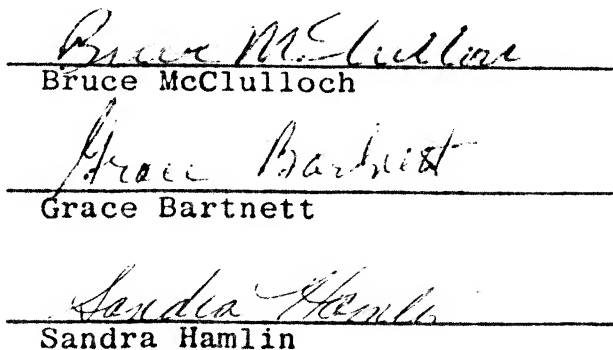 Bruce McCullou
Bruce McClulloch
Grace Bartnett
Grace Bartnett
Sandra Hamlin
Sandra Hamlin